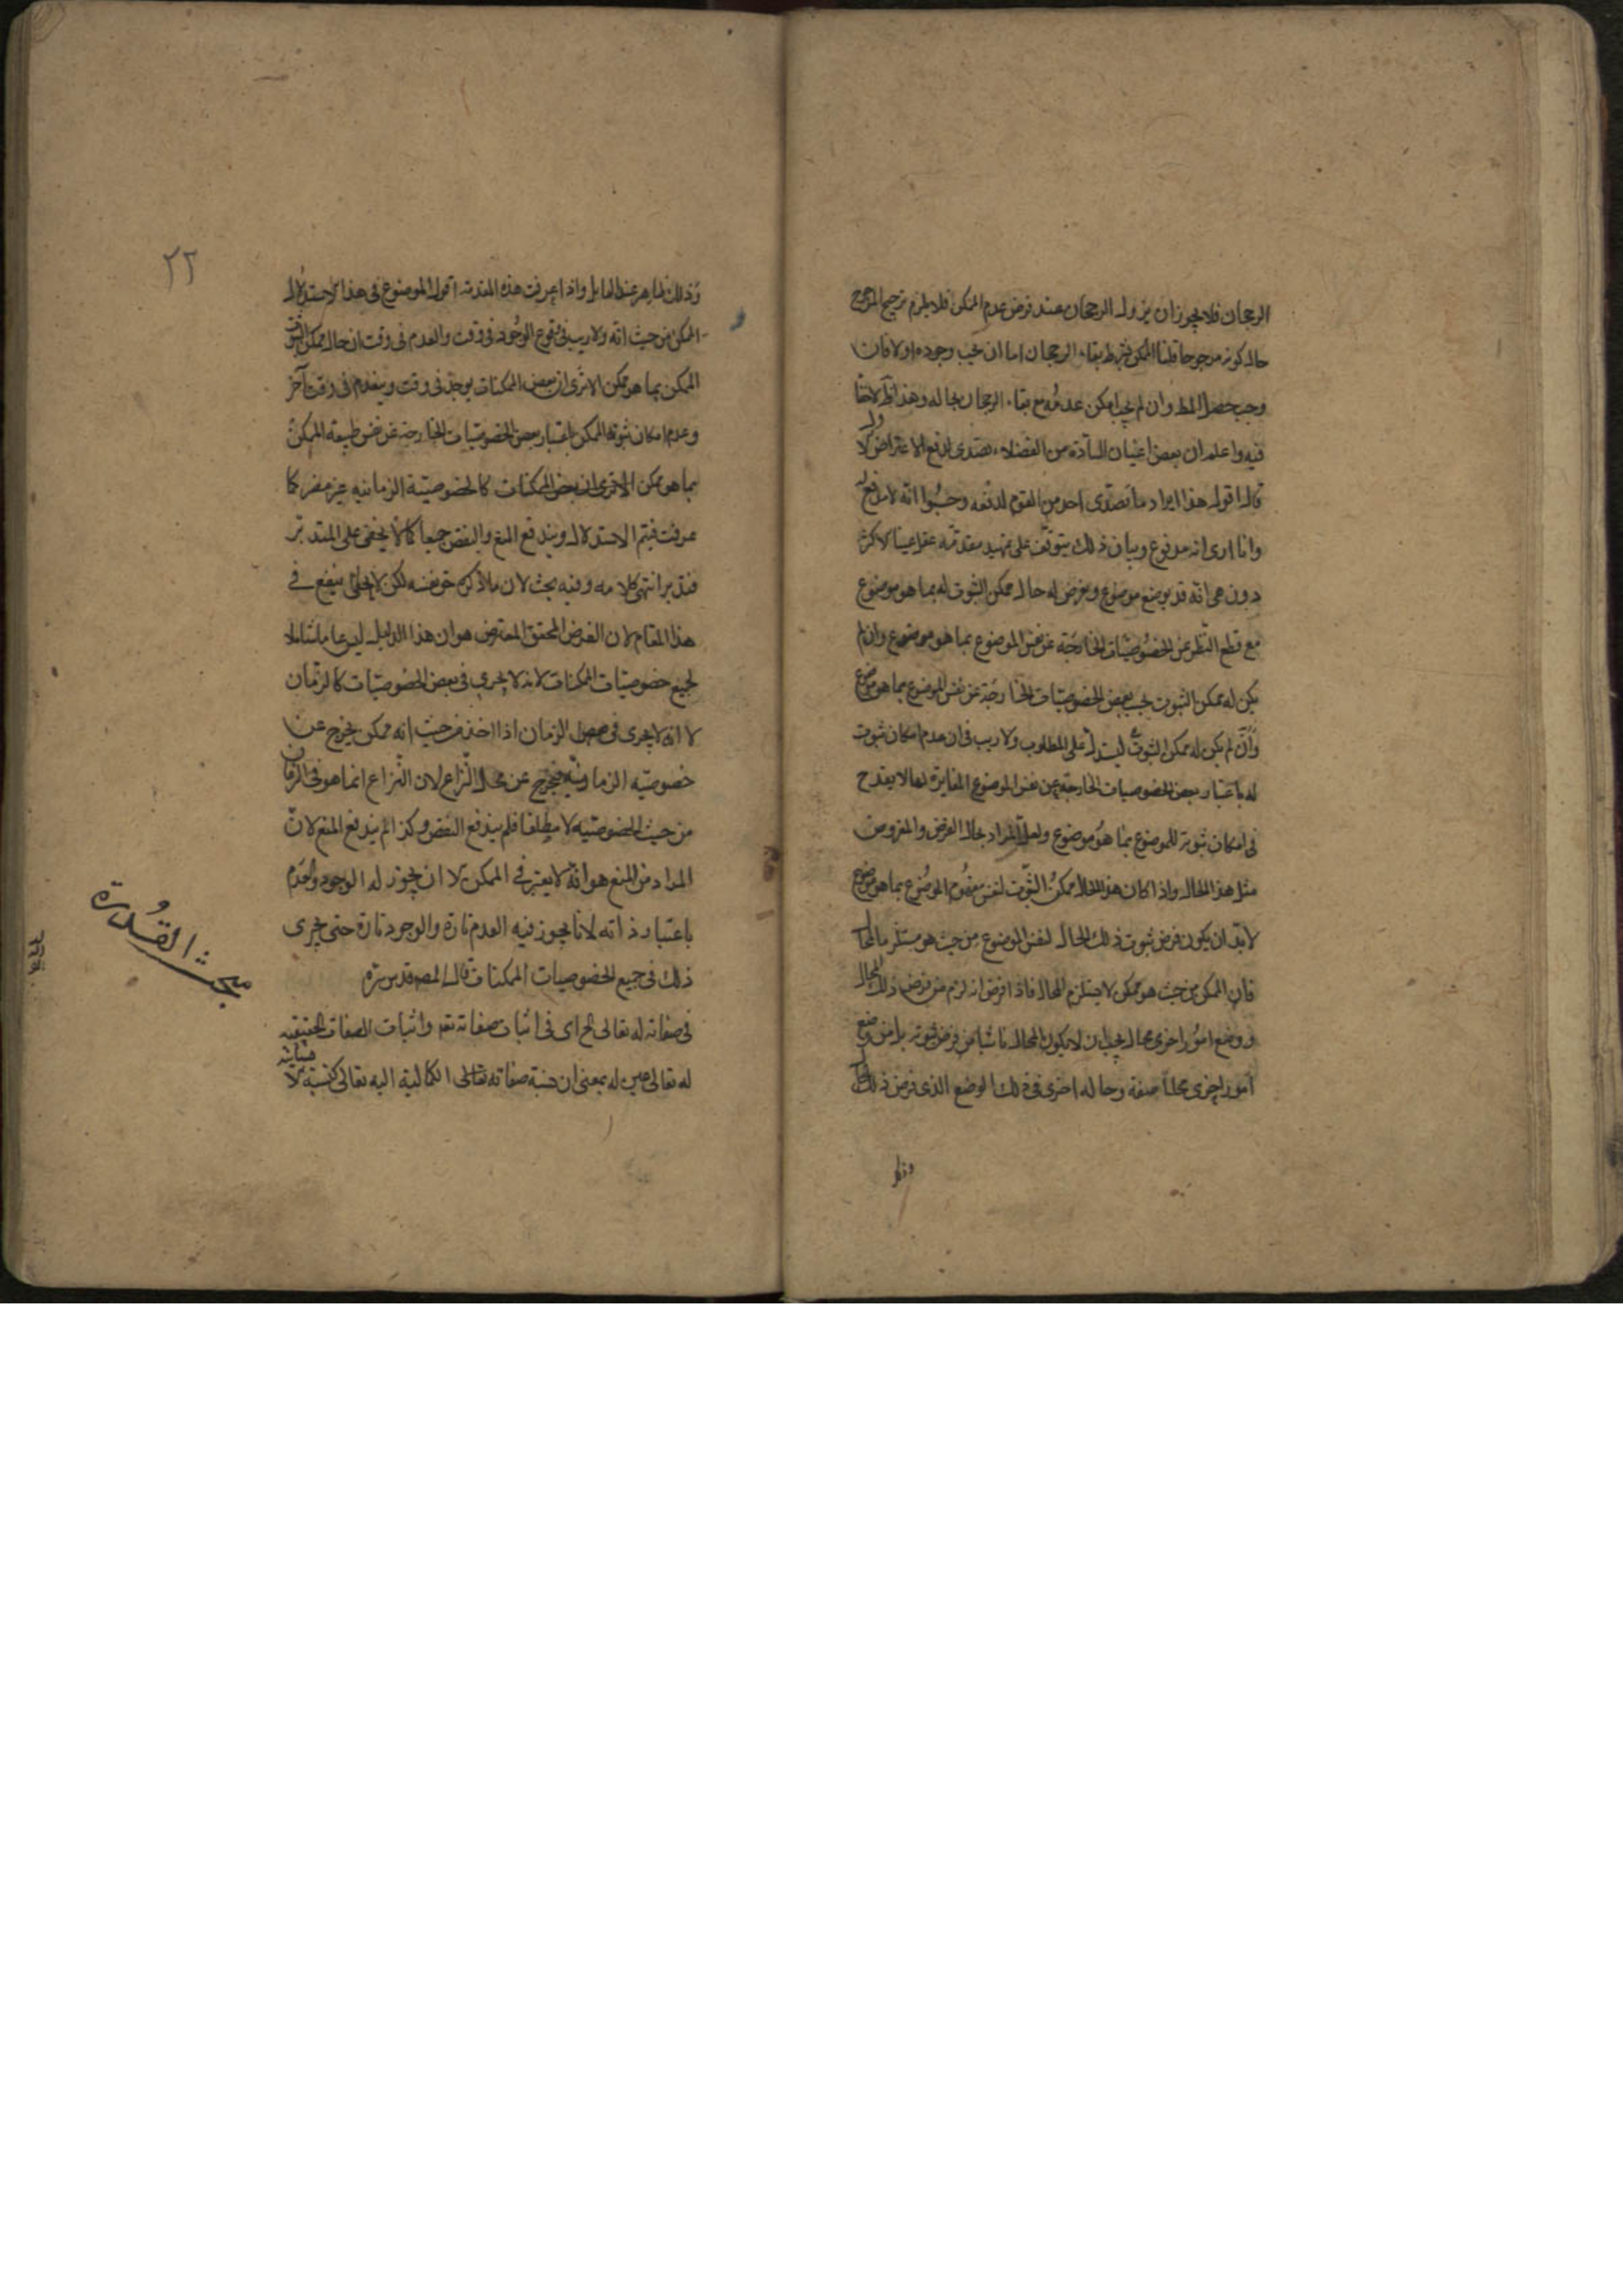 الرجحان فلا يجوز ان يزول الرجحان عند فرض عدم الممكن فلا يلزم ترجيح المرجوح
حال كونه مرجوحا قلنا الممكن بشرط بقاء الرجحان اما ان يجب وجوده اولا فان
وجب حصل المط وان لم يجب امكن عدمه مع بقاء الرجحان بحاله وهذا
فيه واعلم ان بعض اعيان السادة من الفضلاء تصدى لدفع الاعتراض
قال اقول هذا ايراد ما تصدى احد من القوم لدفعه وحسبوا انه لا مدفع له
وانا ارى انه مدفوع وبيان ذلك يتوقف على تمهيد مقدمة
دون هي انه قد يوضع موضوع ويفرض له حال ممكن الثبوت له بما هو موضوع
مع قطع النظر عن الخصوصيات الخارجة عن نفس الموضوع بما هو موضوع وان لم
يكن له ممكن الثبوت بحسب بعض الخصوصيات الخارجة عن نفس الموضوع بما هو موضوع
وان لم يكن له ممكن الثبوت ليستدل على المطلوب ولا ريب فى ان عدم امكان ثبوت
له باعتبار بعض الخصوصيات الخارجة عن نفس الموضوع المغايرة لها لا يقدح
فى امكان ثبوته للموضوع بما هو موضوع ولعل المراد بحال الفرض والمفروض
مثل هذا الحال واذا كان هذا الحال ممكن الثبوت لنفس مفهوم الموضوع بما هو موضوع
لابد ان يكون فرض ثبوت ذلك الحال لنفس الموضوع من حيث هو مستلزما لمحال
فان الممكن من حيث هو ممكن لا يستلزم المحال فاذا فرض انه لزم من فرض ذلك الحال
ووضع امور اخرى محال يجب ان لا يكون المحال ناشيا من فرض ثبوته بل من وضع
امور اخرى محلا صفة وحاله اخرى فى ذلك الوضع الذى فرض ذلك
وذلك
٢٢
وذلك ظاهر عند العاقل واذا عرفت هذه المقدمة اقول الموضوع فى هذا الاستدلال
الممكن من حيث انه ولا ريب فى وقوع الوجود فى وقت والعدم فى وقت ان حال ممكن الثبوت
الممكن بما هو ممكن الا ترى ان بعض الممكنات يوجد فى وقت وينعدم فى وقت آخر
وعدم امكان ثبوته للممكن باعتبار بعض الخصوصيات الخارجة عن نفس طبيعة الممكن
بما هو ممكن الا ترى ان بعض الممكنات كالخصوصية الزمانية غير مضر كما
عرفت فيتم الاستدلال ويندفع المنع والنقض جميعا كما لا يخفى على المتدبر
فتدبر انتهى كلامه وفيه بحث لان ما ذكره حق نفسه لكن لا ينفع فى
هذا المقام لان الغرض المحقق المعترض هو ان هذا الدليل ليس عاما شاملا
لجميع خصوصيات الممكنات لانه لا يجرى فى بعض الخصوصيات كالزمان
لا انه لا يجرى فى الزمان اذا اخذ من حيث انه ممكن يخرج عن
خصوصية الزمانية فيخرج عن محل النزاع لان النزاع انما هو فى الزمان
من حيث الخصوصية لا مطلقا فلم يندفع النقض وكذا لم يندفع المنع لان
المراد من المنع هو انه لا يعتبر فى الممكن الا ان يجوز له الوجود والعدم
باعتبار ذاته لا ان يجوز فيه العدم تارة والوجود تارة حتى يجرى
ذلك فى جميع الخصوصيات الممكنات قال المصـ قدس سره
فى صفاته له تعالى الخ اى فى اثبات صفاته تعـ واثبات الصفات الحقيقية
له تعالى عين له بمعنى ان نسبة صفاته تعالى الكمالية اليه تعالى كنسبة
مبحث القدرة